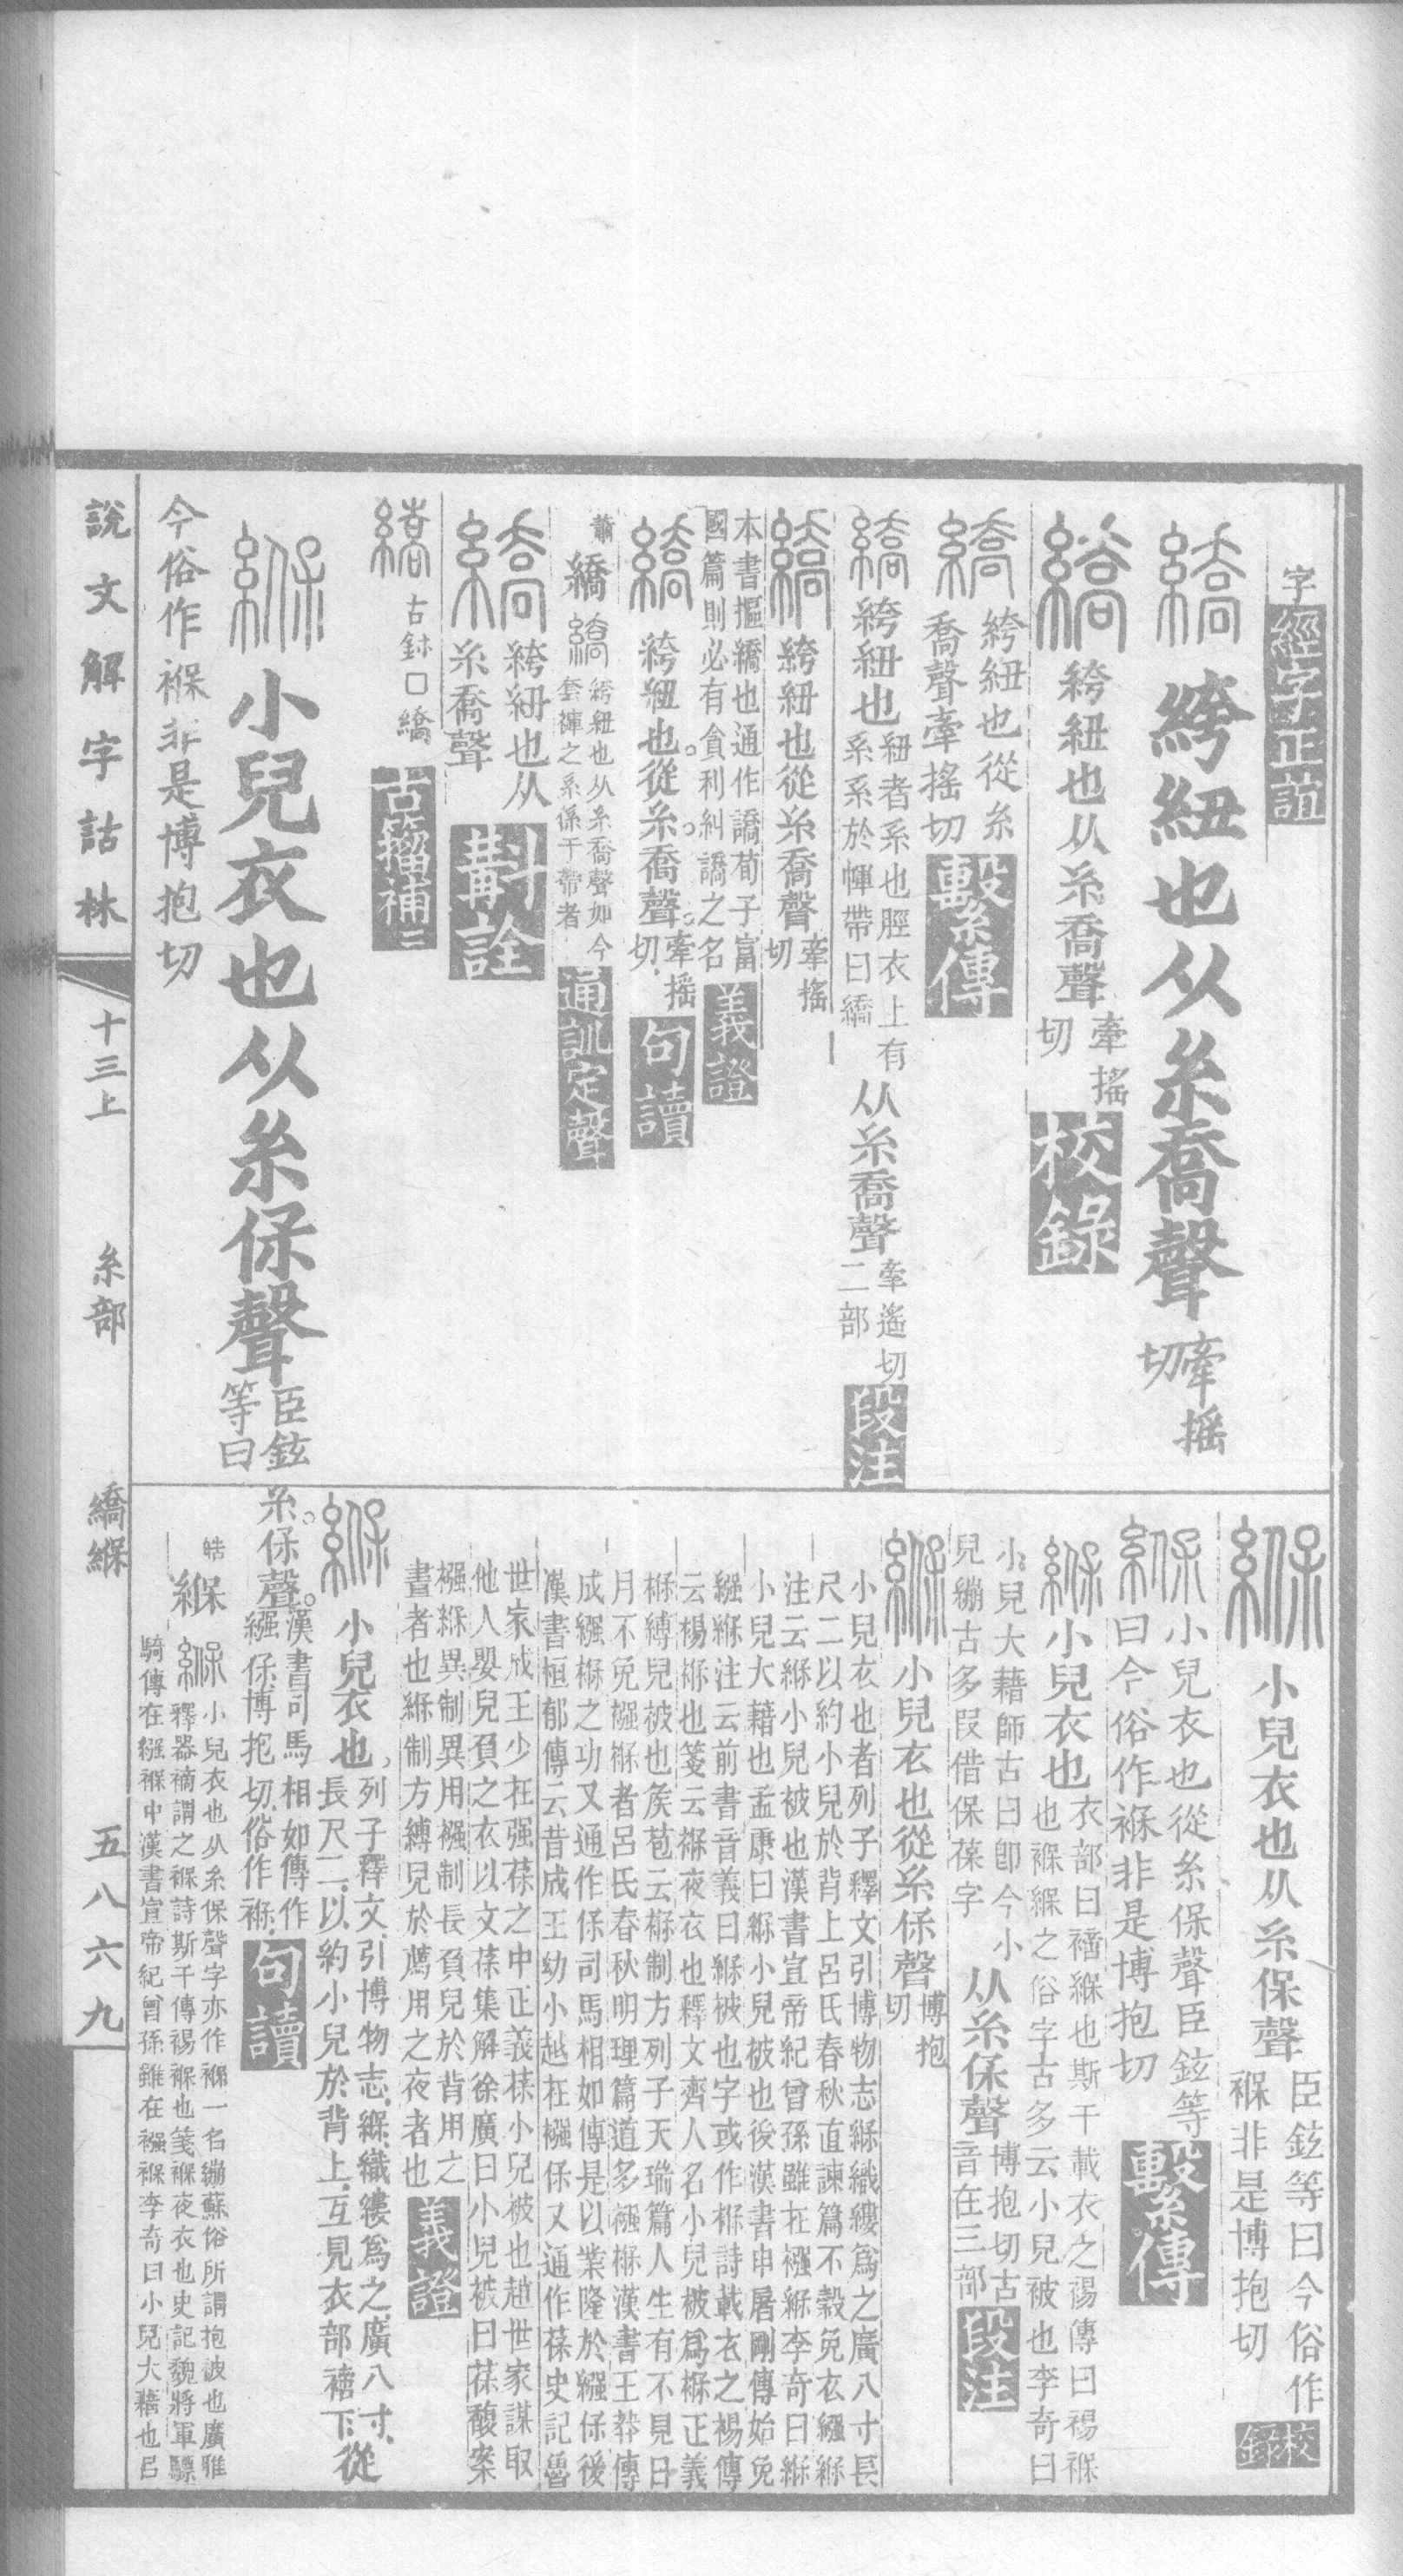 字 經字正誼
繑 絝紐也从糸喬聲 牽搖切
繑 絝紐也从糸喬聲 牽搖切 校錄
繑 絝紐也從糸喬聲牽搖切 繫傳
繑 絝紐也 紐者系也脛衣上有系系於幝帶曰繑 从糸喬聲 牽遙切二部 段注
繑 絝紐也從糸喬聲 牽搖切
本書摳繑也通作譑荀子富國篇則必有貪利糾譑之名 義證
繑 絝紐也。從糸。喬聲。牽搖切 句讀
蕭 繑 繑 絝紐也从糸喬聲如今套褲之系係于帶者 通訓定聲
繑 絝紐也从糸喬聲 斠詮
繑 古鉥口繑 古籀補二
緥 小兒衣也从糸保聲 臣鉉等曰
今俗作褓非是博抱切
緥 小兒衣也从糸保聲 臣鉉等曰今俗作褓非是博抱切 校錄
緥 小兒衣也從糸保聲臣鉉等曰今俗作褓非是博抱切 繫傳
緥 小兒衣也 衣部曰𧝐緥也斯干載衣之裼傳曰裼褓也褓緥之俗字古多云小兒被也李奇曰
小兒大藉師古曰卽今小兒繃古多叚借保葆字 从糸保聲 博抱切古音在三部 段注
緥 小兒衣也從糸保聲 博抱切
小兒衣也者列子釋文引博物志緥織縷爲之廣八寸長
尺二以約小兒於背上呂氏春秋直諫篇不穀免衣繈緥
注云緥小兒被也漢書宣帝紀曾孫雖在襁緥李奇曰緥
小兒大藉也孟康曰緥小兒被也後漢書申屠剛傳始免
繈緥注云前書音義曰緥被也字或作褓詩載衣之裼傳
云裼褓也箋云褓夜衣也釋文齊人名小兒被爲褓正義
褓縛兒被也侯苞云褓制方列子天瑞篇人生有不見日
月不免襁褓者呂氏春秋明理篇道多襁褓漢書王莽傳
成繈褓之功又通作保司馬相如傳是以業隆於繈保後
漢書桓郁傳云昔成王幼小越在襁保又通作葆史記魯
世家成王少在强葆之中正義葆小兒被也趙世家謀取
他人嬰兒負之衣以文葆集解徐廣曰小兒被曰葆馥案
襁緥異制異用襁制長負兒於背用之
晝者也緥制方縛兒於薦用之夜者也 義證
緥 小兒衣也。列子釋文引博物志緥織縷爲之廣八寸長尺二以約小兒於背上互見衣部𧝐下 從
糸。保聲。漢書司馬相如傳作繈保博抱切俗作褓 句讀
皓 緥 緥 小兒衣也从糸保聲字亦作褓一名繃蘇俗所謂抱被也廣雅
釋器𧝐謂之褓詩斯干傳裼褓也箋褓夜衣也史記魏將軍驃
騎傳在繈褓中漢書宣帝紀曾孫雖在襁褓李奇曰小兒大藉也呂
說文解字詁林 十三上 糸部 繑緥 五八六九